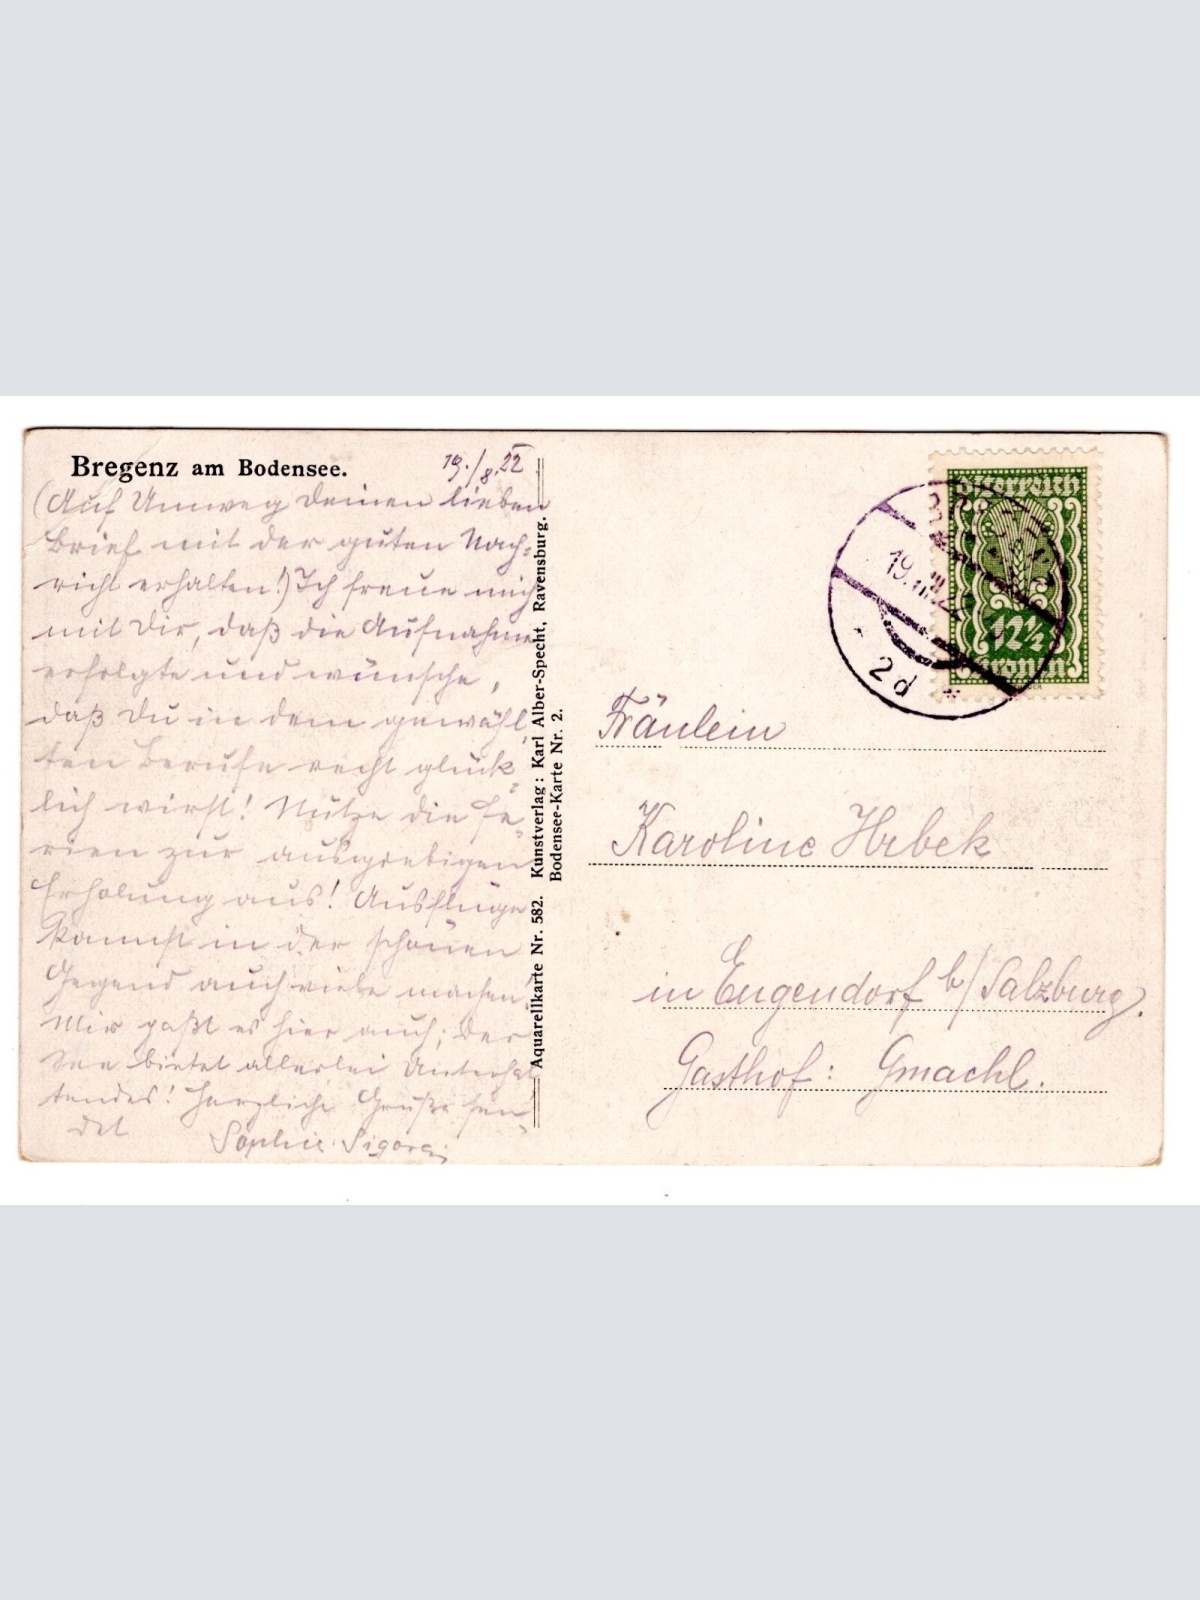 Bregenz am Bodensee.
19./8.22
(Auf Umweg Deinen lieben
Brief mit der guten Nach=
richt erhalten!) Ich freue mich
mit Dir, daß die Aufnahme
erfolgte und wünsche,
daß Du in dem gewähl=
ten Berufe recht glück=
lich wirst! Nütze die Fe=
rien zur ausgiebigen
Erholung aus! Ausflüge
kannst in der schönen
Gegend auch viele machen!
Mir paßt es hier auch; der
See bietet allerlei Unterhal
tendes! Herzliche Grüße sen=
det
Sophie
Aquarellkarte Nr. 582. Kunstverlag: Karl Alber-Specht, Ravensburg.
Bodensee-Karte Nr. 2.
Österreich
12½
Kronen
19.VIII.22
2d
Fräulein
Karoline Hrbek
in Eugendorf b/Salzburg.
Gasthof: Gmachl.